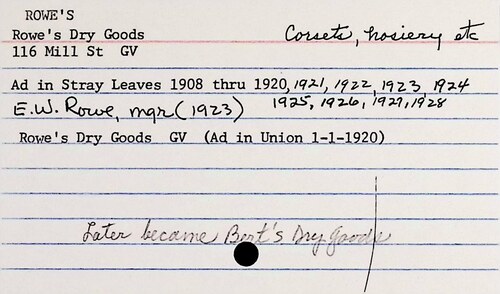 ROWE'S
Rowe's Dry Goods Corsets, hosiery etc
116 Mill St GV
Ad in Stray Leaves 1908 thru 1920, 1921, 1922, 1923 1924
1925, 1926, 1927, 1928
E.W. Rowe, mgr (1923)
Rowe's Dry Goods GV (Ad in Union 1-1-1920)
Later became Bert's Dry Goods